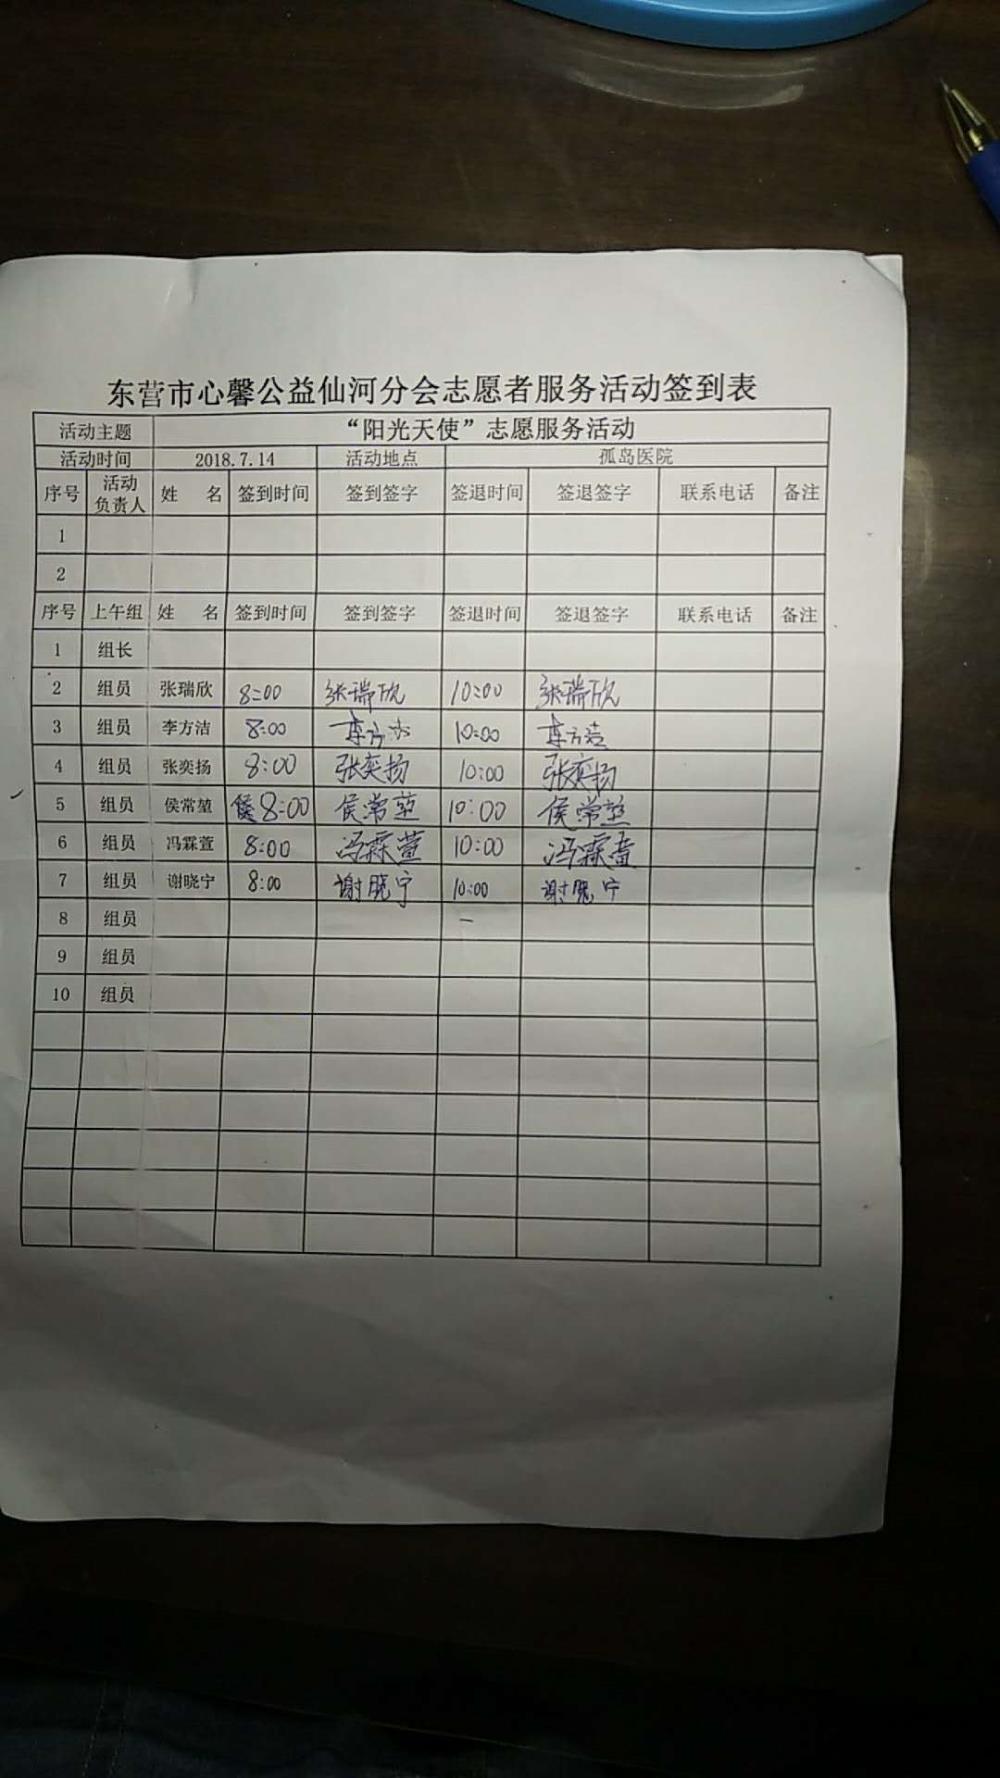 东营市心馨公益仙河分会志愿者服务活动签到表
活动主题 “阳光天使”志愿服务活动
活动时间 2018.7.14 活动地点 孤岛医院
序号 活动负责人 姓 名 签到时间 签到签字 签退时间 签退签字 联系电话 备注
1
2
序号 上午组 姓 名 签到时间 签到签字 签退时间 签退签字 联系电话 备注
1 组长
2 组员 张瑞欣 8:00 张瑞欣 10:00 张瑞欣
3 组员 李方洁 8:00 李方洁 10:00 李方洁
4 组员 张奕扬 8:00 张奕扬 10:00 张奕扬
5 组员 侯常堃 侯8:00 侯常堃 10:00 侯常堃
6 组员 冯霖萱 8:00 冯霖萱 10:00 冯霖萱
7 组员 谢晓宁 8:00 谢晓宁 10:00 谢晓宁
8 组员
9 组员
10 组员